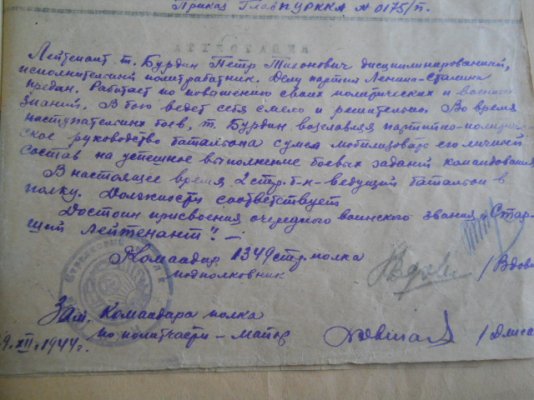 Приказ ГлавПУРККА № 0175/п.
Лейтенант т. Бурдин Петр Тихонович дисциплинированный,
исполнительный политработник. Делу партии Ленина-Сталина
предан. Работает по повышению своих политических и военных
знаний. В бою ведет себя смело и решительно. Во время
наступательных боев, т. Бурдин возглавляя партийно-полити
ческое руководство батальона сумел мобилизовать его личный
состав на успешное выполнение боевых заданий командования
В настоящее время 2 стр. б-н - ведущий батальон в
полку. Должности соответствует
Достоин присвоения очередного воинского звания "Стар
ший Лейтенант"! —
Командир 1349 стр. полка
подполковник /Вдов
Зам. Командира полка
по политчасти - майор
9.XII.1944г.